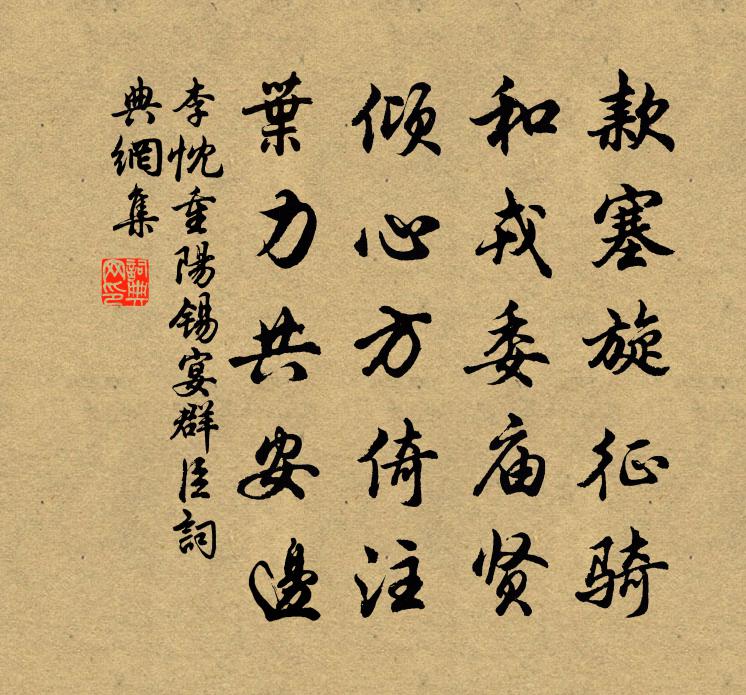 款塞旋征骑
和戎委庙贤
倾心方倚注
葉力共安邊
李忱重陽锡宴群臣詞
典網集
詞典网印